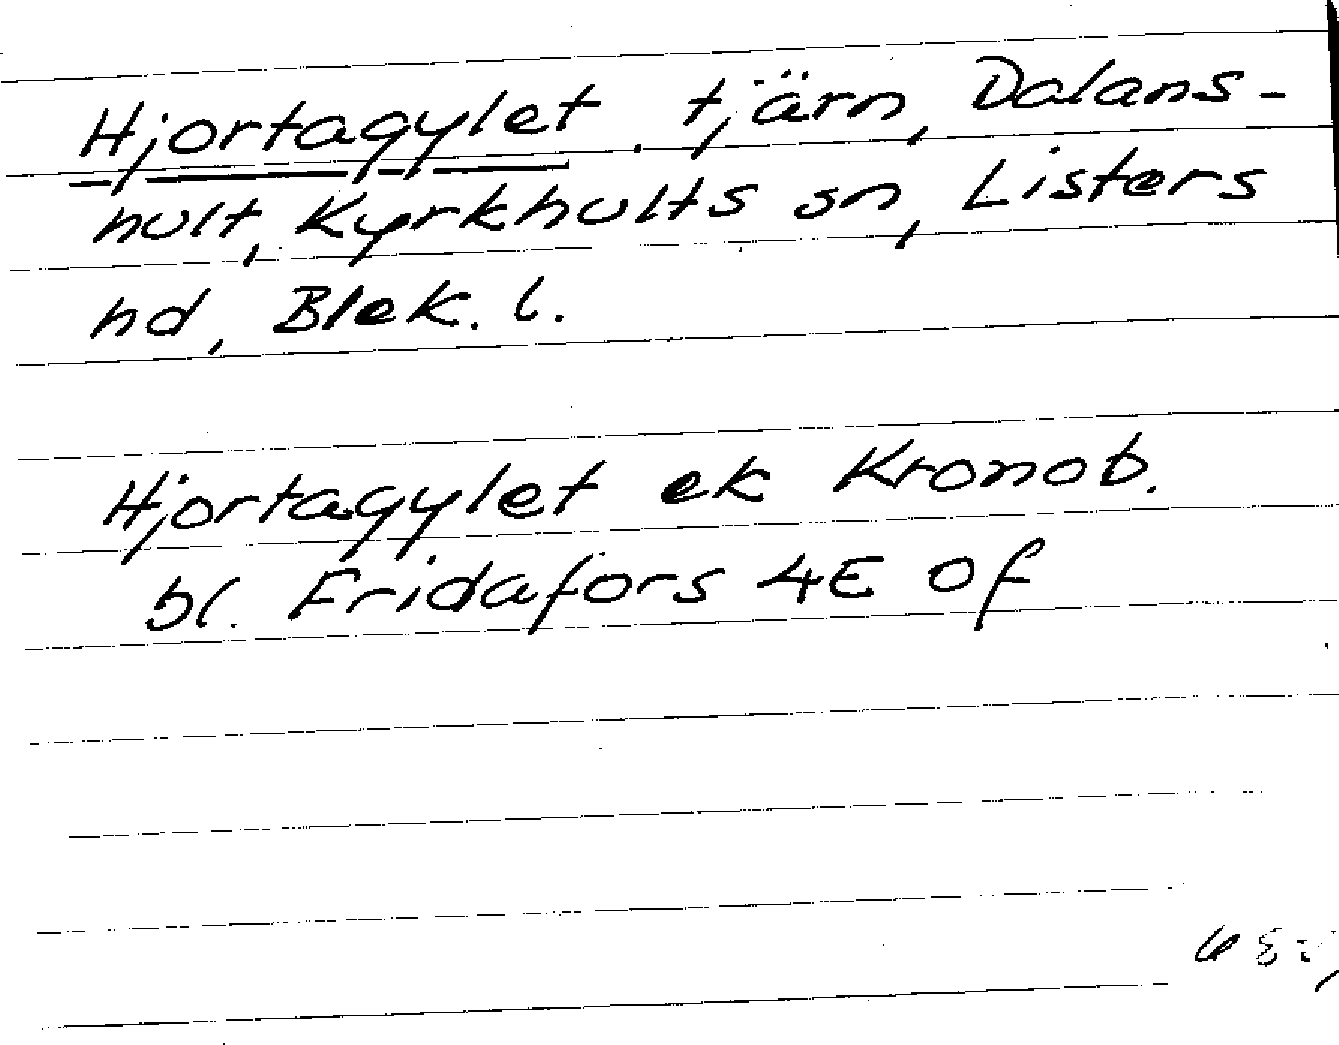 Hjortagylet. tjärn, Dalans-
hult, Kyrkhults sn, Listers
hd, Blek. l.
Hjortagylet ek Kronob.
bl. Fridafors 4E Of